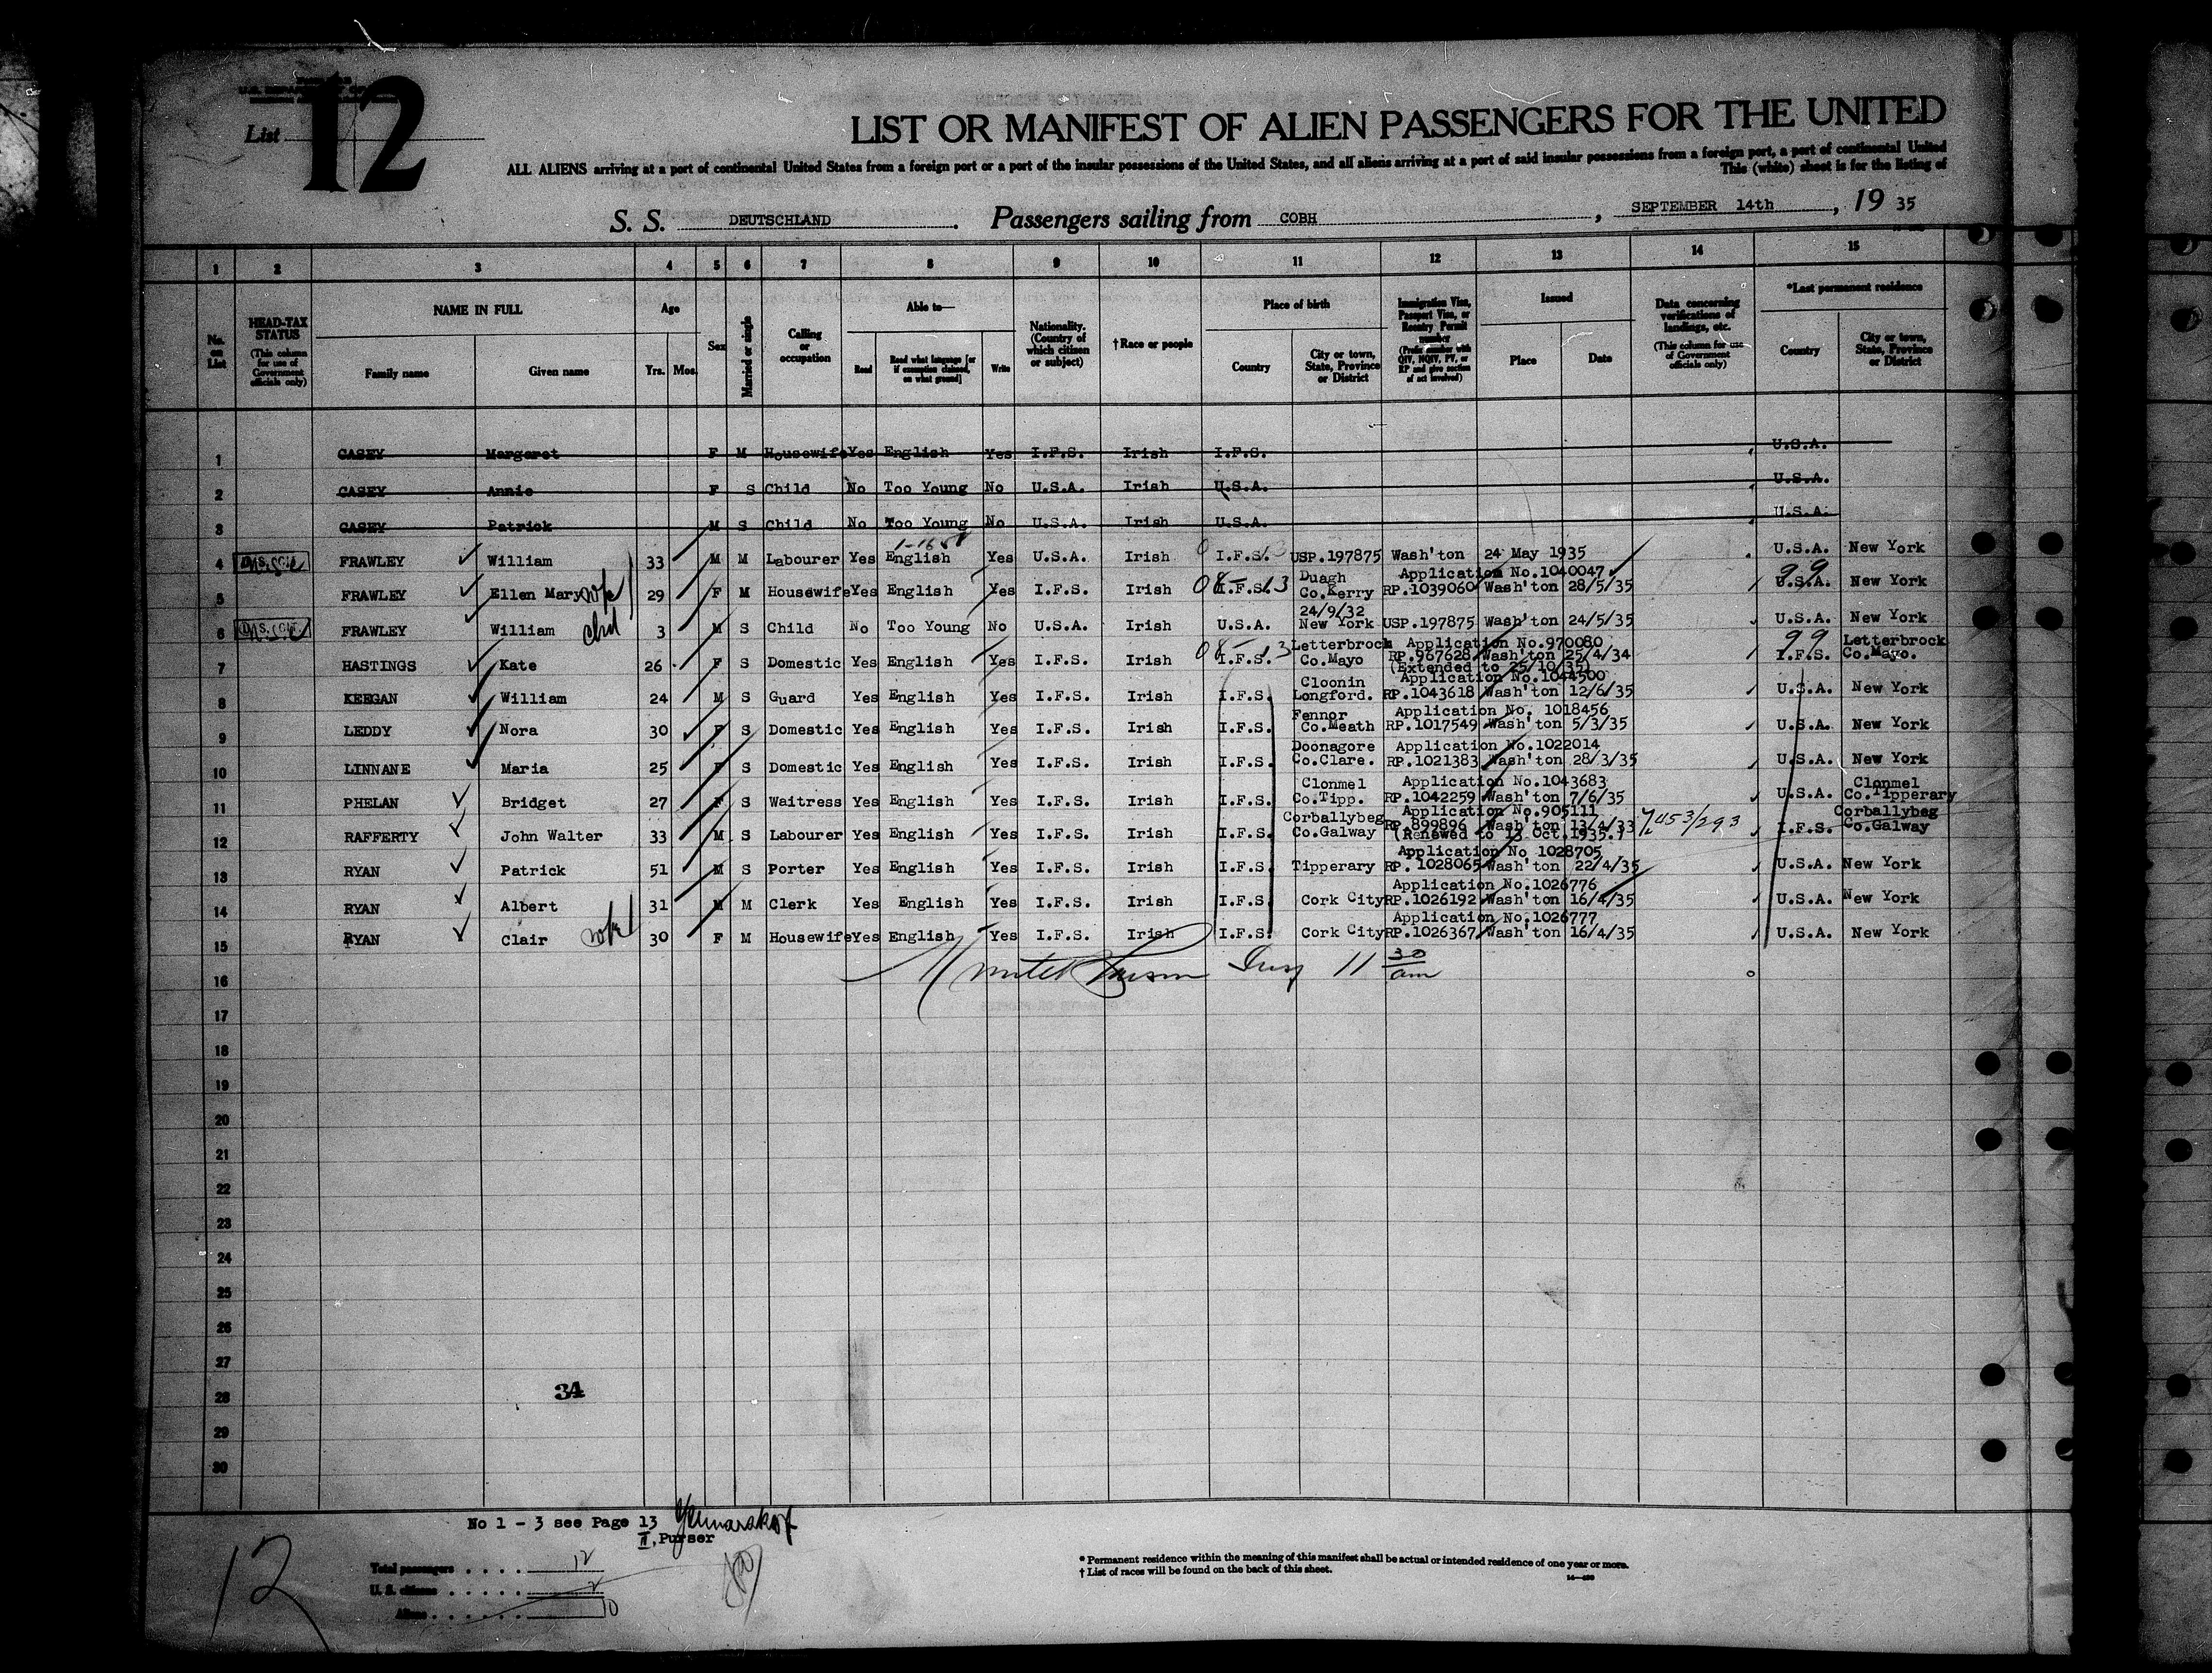 12
List
LIST OR MANIFEST OF ALIEN PASSENGERS FOR THE UNITED
ALL ALIENS arriving at a port of continental United States from a foreign port or a port of the insular possessions of the United States, and all aliens arriving at a port of said insular possessions from a foreign port, a port of continental United
This (white) sheet is for the listing of
S. S. DEUTSCHLAND. Passengers sailing from COBH, SEPTEMBER 14th, 19 35
1 2 3 4 5 6 7 8 9 10 11 12 13 14 15
No. on List
HEAD-TAX STATUS (This column for use of Government officials only)
NAME IN FULL
Family name
Given name
Age
Yrs. Mos.
Sex
Married or single
Calling or occupation
Able to—
Read
Read what language [or if exemption claimed, on what ground]
Write
Nationality. (Country of which citizen or subject)
†Race or people
Place of birth
Country
City or town, State, Province or District
Immigration Visa, Passport Visa, or Reentry Permit number (Prefix number with QIV, NQIV, PV, or RP and give section of act involved)
Issued
Place
Date
Data concerning verifications of landings, etc. (This column for use of Government officials only)
*Last permanent residence
Country
City or town, State, Province or District
1 CASEY Margaret F M Housewife Yes English Yes I.F.S. Irish I.F.S. U.S.A.
2 CASEY Annie F S Child No Too Young No U.S.A. Irish U.S.A. U.S.A.
3 CASEY Patrick M S Child No Too Young No U.S.A. Irish U.S.A. U.S.A.
4 FRAWLEY William 33 M M Labourer Yes English Yes U.S.A. Irish I.F.S. USP.197875 Wash'ton 24 May 1935 U.S.A. New York
5 FRAWLEY Ellen Mary wfe 29 F M Housewife Yes English Yes I.F.S. Irish I.F.S. Duagh Co.Kerry Application No.1040047 RP.1039060 Wash'ton 28/5/35 99 U.S.A. New York
6 FRAWLEY William chd 3 M S Child No Too Young No U.S.A. Irish U.S.A. 24/9/32 New York USP.197875 Wash'ton 24/5/35 U.S.A. New York
7 HASTINGS Kate 26 F S Domestic Yes English Yes I.F.S. Irish I.F.S. Letterbrock Co.Mayo Application No.970080 RP.967628 Wash'ton 25/4/34 (Extended to 25/10/35) 99 I.F.S. Letterbrock Co.Mayo.
8 KEEGAN William 24 M S Guard Yes English Yes I.F.S. Irish I.F.S. Cloonin Longford. Application No.1044500 RP.1043618 Wash'ton 12/6/35 U.S.A. New York
9 LEDDY Nora 30 F S Domestic Yes English Yes I.F.S. Irish I.F.S. Fennor Co.Meath Application No. 1018456 RP.1017549 Wash'ton 5/3/35 U.S.A. New York
10 LINNANE Maria 25 F S Domestic Yes English Yes I.F.S. Irish I.F.S. Doonagore Co.Clare. Application No.1022014 RP.1021383 Wash'ton 28/3/35 U.S.A. New York
11 PHELAN Bridget 27 F S Waitress Yes English Yes I.F.S. Irish I.F.S. Clonmel Co.Tipp. Application No.1043683 RP.1042259 Wash'ton 7/6/35 U.S.A. Clonmel Co.Tipperary
12 RAFFERTY John Walter 33 M S Labourer Yes English Yes I.F.S. Irish I.F.S. Corballybeg Co.Galway Application No.905111 RP.899896 Wash'ton 13/4/33 (Renewed to 13 Oct.1935.) I.F.S. Corballybeg Co.Galway
13 RYAN Patrick 51 M S Porter Yes English Yes I.F.S. Irish I.F.S. Tipperary Application No 1028705 RP. 1028065 Wash'ton 22/4/35 U.S.A. New York
14 RYAN Albert 31 M M Clerk Yes English Yes I.F.S. Irish I.F.S. Cork City Application No.1026776 RP.1026192 Wash'ton 16/4/35 U.S.A. New York
15 RYAN Clair wfe 30 F M Housewife Yes English Yes I.F.S. Irish I.F.S. Cork City Application No.1026777 RP.1026367 Wash'ton 16/4/35 U.S.A. New York
11 30 am
16
17
18
19
20
21
22
23
24
25
26
27
34
28
29
30
No 1 - 3 see Page 13
II, Purser
12
Total passengers . . . . 12
U. S. citizens . . . . . 2
Aliens . . . . . . . 10
* Permanent residence within the meaning of this manifest shall be actual or intended residence of one year or more.
† List of races will be found on the back of this sheet.